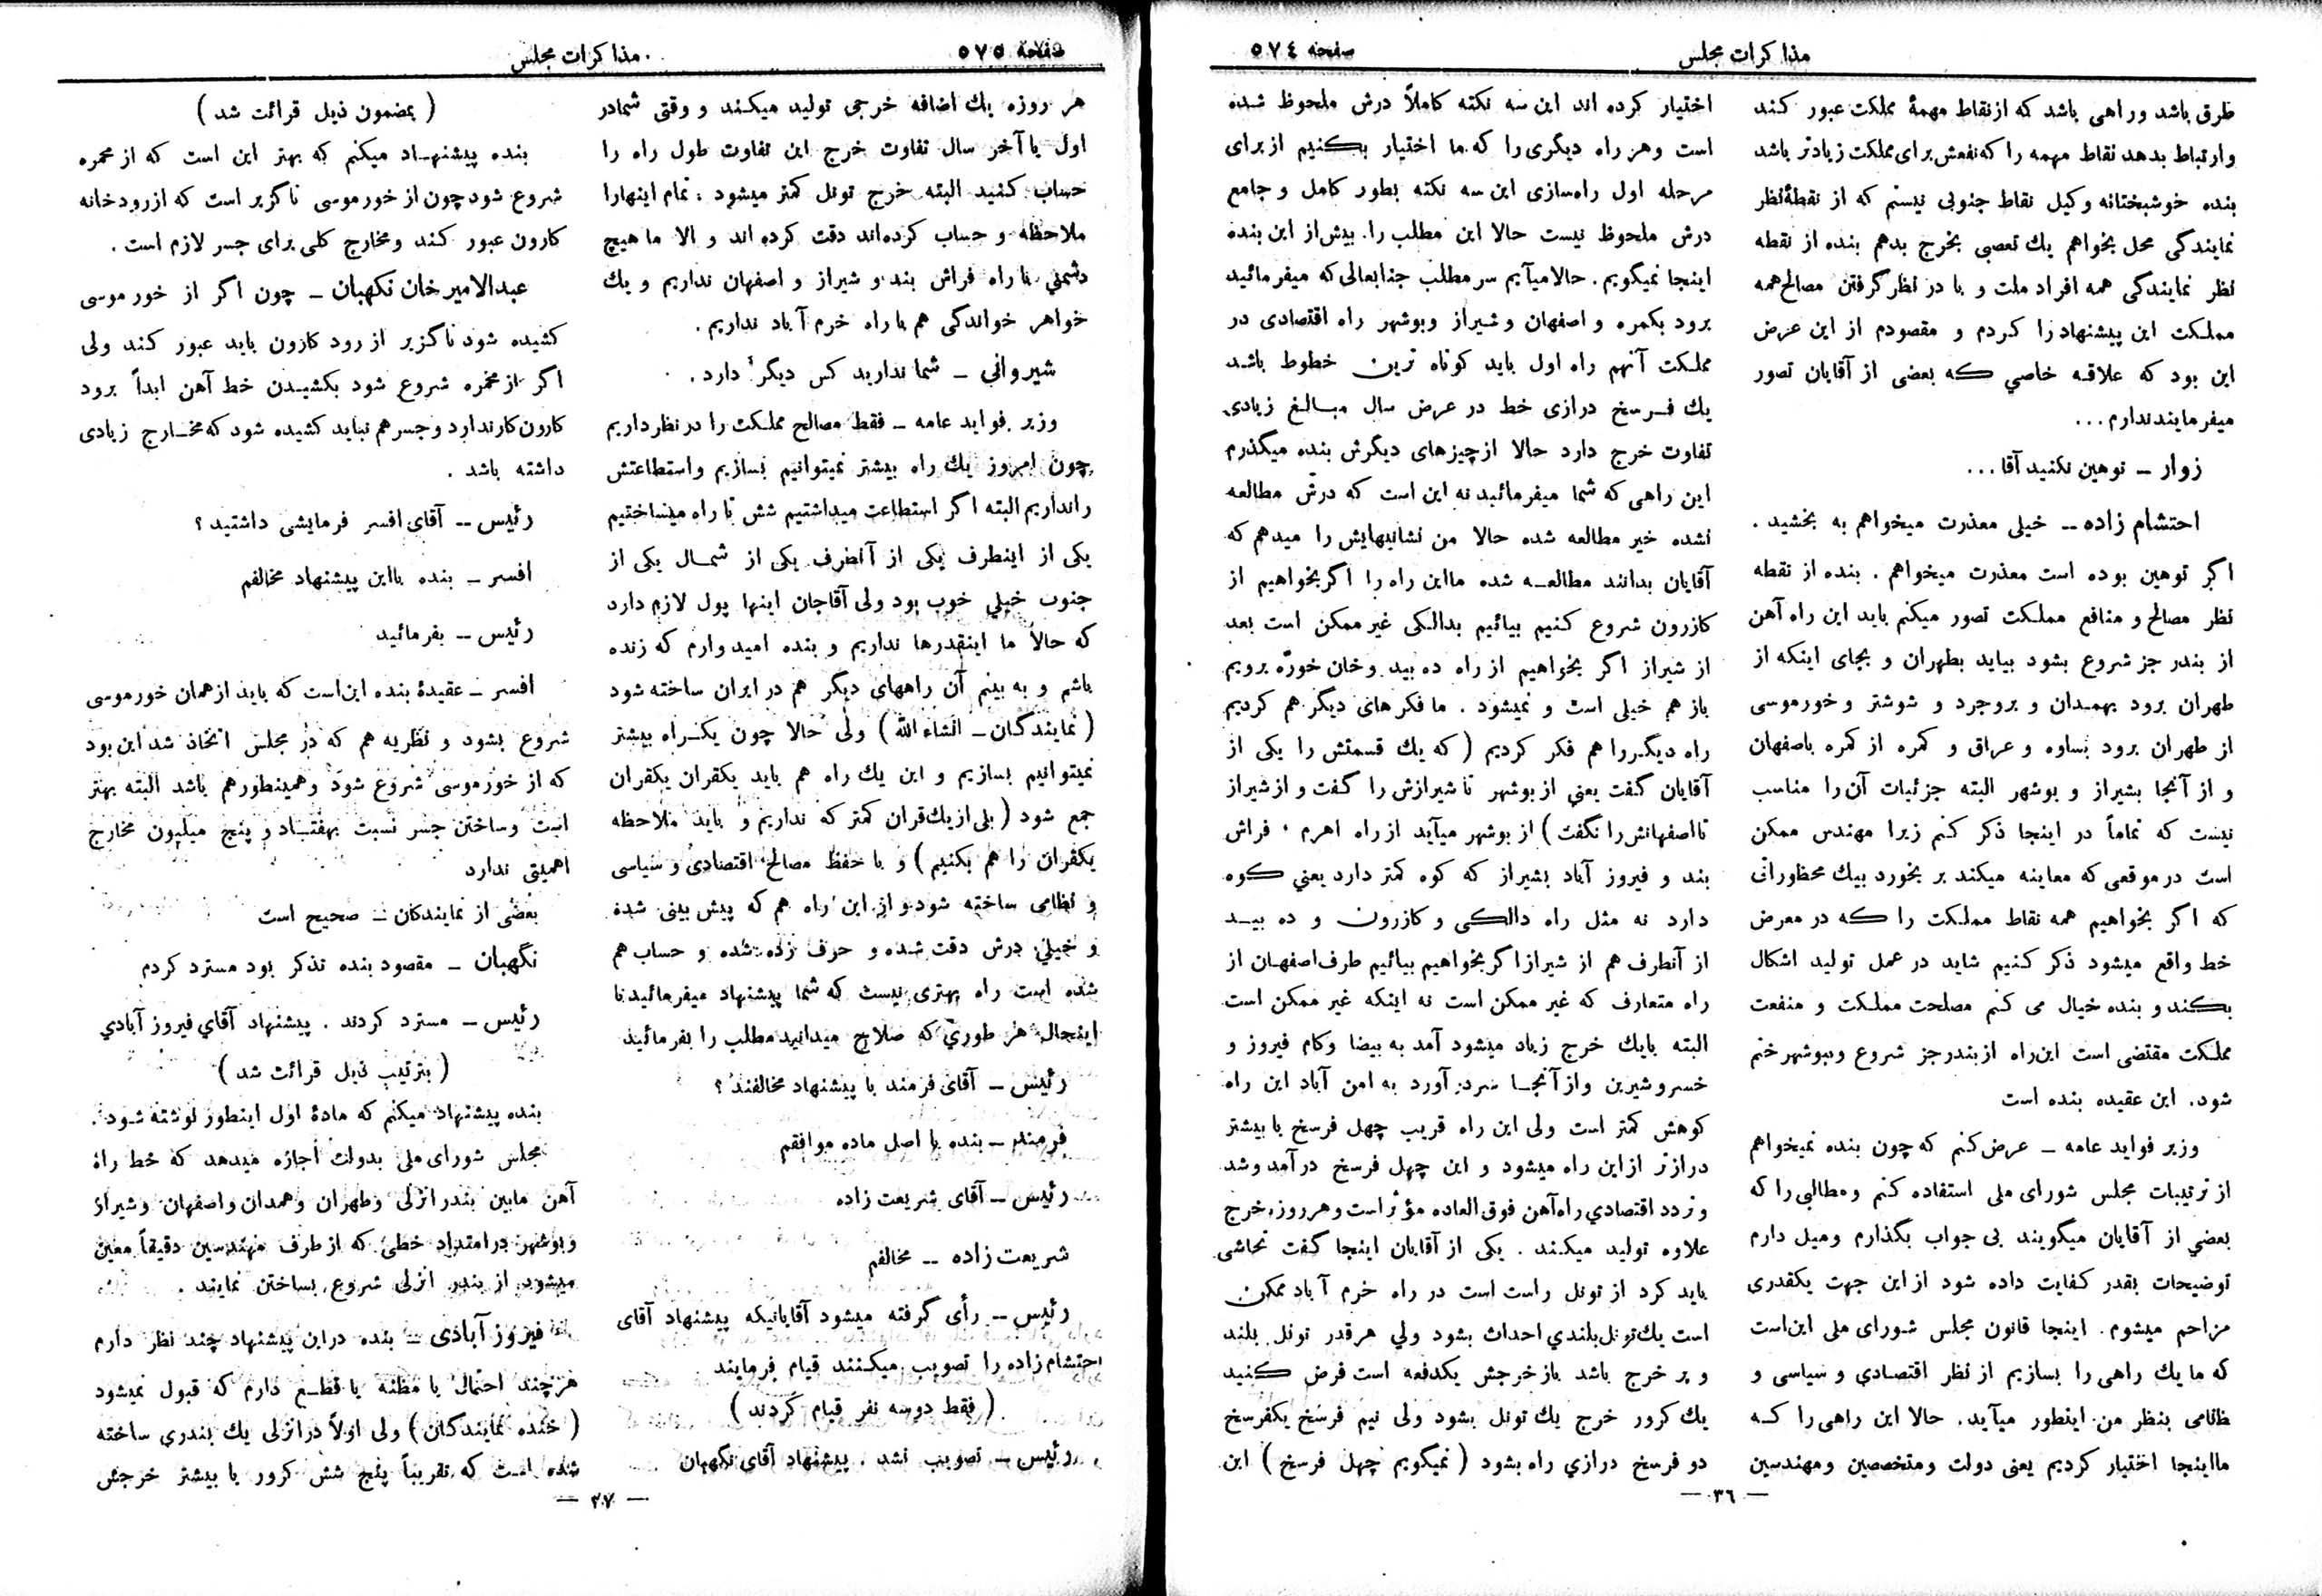 مذاکرات مجلس
صفحه ٥٧٤
طرق باشد و راهی باشد که از نقاط مهمهٔ مملکت عبور کند
و ارتباط بدهد نقاط مهمه را که نفعش برای مملکت زیادتر باشد
بنده خوشبختانه وکیل نقاط جنوبی نیستم که از نقطهٔ نظر
نمایندگی محل بخواهم یك تعصبی بخرج بدهم بنده از نقطه
نظر نمایندگی همه افراد ملت و با در نظر گرفتن مصالح همه
مملکت این پیشنهاد را کردم و مقصودم از این عرض
این بود که علاقه خاصی که بعضی از آقایان تصور
میفرمایند ندارم...
زوار ــ توهین نکنید آقا...
احتشام زاده ــ خیلی معذرت میخواهم به بخشید.
اگر توهین بوده است معذرت میخواهم. بنده از نقطه
نظر مصالح و منافع مملکت تصور میکنم باید این راه آهن
از بندر جز شروع بشود بیاید بطهران و بجای اینکه از
طهران برود بهمدان و بروجرد و شوشتر و خورموسی
از طهران برود بساوه و عراق و کمره از کمره باصفهان
و از آنجا بشیراز و بوشهر البته جزئیات آن را مناسب
نیست که تماماً در اینجا ذکر کنم زیرا مهندس ممکن
است در موقعی که معاینه میکند بر بخورد بیك محظوراتی
که اگر بخواهیم همه نقاط مملکت را که در معرض
خط واقع میشود ذکر کنیم شاید در عمل تولید اشکال
بکند و بنده خیال می کنم مصلحت مملکت و منفعت
مملکت مقتضی است این راه از بندر جز شروع و ببوشهر ختم
شود. این عقیده بنده است
وزیر فواید عامه ــ عرض کنم که چون بنده نمیخواهم
از ترتیبات مجلس شورای ملی استفاده کنم و مطالبی را که
بعضی از آقایان میگویند بی جواب بگذارم و میل دارم
توضیحات بقدر کفایت داده شود از این جهت یکقدری
مزاحم میشوم. اینجا قانون مجلس شورای ملی این است
که ما یك راهی را بسازیم از نظر اقتصادی و سیاسی و
ظامی بنظر من اینطور میآید. حالا این راهی را که
ما اینجا اختیار کردیم یعنی دولت و متخصصین و مهندسین
اختیار کرده اند این سه نکته کاملاً درش ملحوظ شده
است و هر راه دیگری را که ما اختیار بکنیم از برای
مرحله اول راه سازی این سه نکته بطور کامل و جامع
درش ملحوظ نیست حالا این مطلب را. بیش از این بنده
اینجا نمیگویم. حالا میآیم سر مطلب جنابعالی که میفرمائید
برود بکمره و اصفهان و شیراز و بوشهر راه اقتصادی در
مملکت آنهم راه اول باید کوتاه ترین خطوط باشد
یك فرسخ درازی خط در عرض سال مبالغ زیادی
تفاوت خرج دارد حالا از چیزهای دیگرش بنده میگذرم
این راهی که شما میفرمائید نه این است که درش مطالعه
نشده خیر مطالعه شده حالا من نشانیهایش را میدهم که
آقایان بدانند مطالعه شده ما این راه را اگر بخواهیم از
کازرون شروع کنیم بیائیم بدالکی غیر ممکن است بعد
از شیراز اگر بخواهیم از راه ده بید و خان خوره برویم
باز هم خیلی است و نمیشود. ما فکرهای دیگر هم کردیم
راه دیگر را هم فکر کردیم (که یك قسمتش را یکی از
آقایان گفت یعنی از بوشهر تا شیرازش را گفت و از شیراز
تا اصفهانش را نگفت) از بوشهر میآید از راه اهرم، فراش
بند و فیروز آباد بشیراز که کوه کمتر دارد یعنی کوه
دارد نه مثل راه دالکی و کازرون و ده بید
از آنطرف هم از شیراز اگر بخواهیم بیائیم طرف اصفهان از
راه متعارف که غیر ممکن است نه اینکه غیر ممکن است
البته بایك خرج زیاد میشود آمد به بیضا و کام فیروز و
خسرو شیرین و از آنجا سر در آورد به امن آباد این راه
کوهش کمتر است ولی این راه قریب چهل فرسخ یا بیشتر
درازتر از این راه میشود و این چهل فرسخ در آمد و شد
و تردد اقتصادی راه آهن فوق العاده مؤثر است و هر روزه خرج
علاوه تولید میکند. یکی از آقایان اینجا گفت تحاشی
باید کرد از تونل راست است در راه خرم آباد ممکن
است یك تونل بلندی احداث بشود ولی هر قدر تونل بلند
و پر خرج باشد باز خرجش یکدفعه است فرض کنید
یك کرور خرج یك تونل بشود ولی نیم فرسخ یکفرسخ
دو فرسخ درازی راه بشود (نمیگویم چهل فرسخ) این
ــ ٣٦ ــ
مذاکرات مجلس
صفحه ٥٧٥
هر روزه یك اضافه خرجی تولید میکند و وقتی شما در
اول یا آخر سال تفاوت خرج این تفاوت طول راه را
حساب کنید البته خرج تونل کمتر میشود، تمام اینها را
ملاحظه و حساب کرده اند دقت کرده اند و الا ما هیچ
دشمنی با راه فراش بند و شیراز و اصفهان نداریم و یك
خواهر خواندگی هم با راه خرم آباد نداریم.
شیروانی ــ شما ندارید کس دیگر دارد.
وزیر فواید عامه ــ فقط مصالح مملکت را در نظر داریم
چون امروز یك راه بیشتر نمیتوانیم بسازیم و استطاعتش
را نداریم البته اگر استطاعت میداشتیم شش تا راه میساختیم
یکی از اینطرف یکی از آنطرف یکی از شمال یکی از
جنوب خیلی خوب بود ولی آقاجان اینها پول لازم دارد
که حالا ما اینقدرها نداریم و بنده امیدوارم که زنده
باشم و به بینم آن راههای دیگر هم در ایران ساخته شود
(نمایندگان ــ انشاء الله) ولی حالا چون یکراه بیشتر
نمیتوانیم بسازیم و این یك راه هم باید یکقران یکقران
جمع شود (بلی از یك قران کمتر که نداریم و باید ملاحظه
یکقران را هم بکنیم) و با حفظ مصالح اقتصادی و سیاسی
و نظامی ساخته شود و از این راه هم که پیش بینی شده
و خیلی درش دقت شده و حرف زده شده و حساب هم
شده است راه بهتری نیست که شما پیشنهاد میفرمائید با
اینحال هر طوری که صلاح میدانید مطلب را بفرمائید
رئیس ــ آقای فرمند با پیشنهاد مخالفند؟
فرمند ــ بنده با اصل ماده موافقم
رئیس ــ آقای شریعت زاده
شریعت زاده ــ مخالفم
رئیس ــ رأی گرفته میشود آقایانیکه پیشنهاد آقای
احتشام زاده را تصویب میکنند قیام فرمایند
(فقط دوسه نفر قیام کردند)
رئیس ــ تصویب نشد. پیشنهاد آقای نگهبان
(بمضمون ذیل قرائت شد)
بنده پیشنهاد میکنم که بهتر این است که از محمره
شروع شود چون از خورموسی ناگزیر است که از رودخانه
کارون عبور کند و مخارج کلی برای جسر لازم است.
عبدالامیر خان نگهبان ــ چون اگر از خور موسی
کشیده شود ناگزیر از رود کارون باید عبور کند ولی
اگر از محمره شروع شود بکشیدن خط آهن ابداً برود
کارون کار ندارد و جسر هم نباید کشیده شود که مخارج زیادی
داشته باشد.
رئیس ــ آقای افسر فرمایشی داشتید؟
افسر ــ بنده با این پیشنهاد مخالفم
رئیس ــ بفرمائید
افسر ــ عقیدهٔ بنده این است که باید از همان خورموسی
شروع بشود و نظریه هم که در مجلس اتخاذ شد این بود
که از خورموسی شروع شود و همینطور هم باشد البته بهتر
است و ساختن جسر نسبت بهفتاد و پنج میلیون مخارج
اهمیتی ندارد
بعضی از نمایندگان ــ صحیح است
نگهبان ــ مقصود بنده تذکر بود مسترد کردم
رئیس ــ مسترد کردند. پیشنهاد آقای فیروز آبادی
(بترتیب ذیل قرائت شد)
بنده پیشنهاد میکنم که مادهٔ اول اینطور نوشته شود.
مجلس شورای ملی بدولت اجازه میدهد که خط راه
آهن مابین بندر انزلی و طهران و همدان و اصفهان و شیراز
و بوشهر در امتداد خطی که از طرف مهندسین دقیقاً معین
میشود از بندر انزلی شروع بساختن نمایند.
فیروز آبادی ــ بنده در این پیشنهاد چند نظر دارم
هر چند احتمال یا مظنه یا قطع دارم که قبول نمیشود
(خنده نمایندگان) ولی اولاً در انزلی یك بندری ساخته
شده است که تقریباً پنج شش کرور یا بیشتر خرجش
ــ ٣٧ ــ